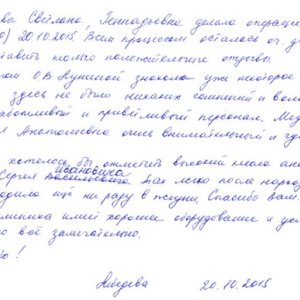 ва Светлана Геннадьевна делала операцию
) 20.10.2015, Всем процессом осталась оч. д
тавить только положительные отзывы.
О.В. Луниной знакома уже некоторое
здесь не было никаких сомнений и волн
аботливый и приветливый персонал. Мед
Анатольевна очень внимательный и
хотелось бы отметить высокий класс ане
Сергея Ивановича Так легко после нарко
одила ещё ни разу в жизни. Спасибо Вам.
иника имеет хорошее оборудование и
о всё замечательно.
о!
Лебедева 20.10.2015